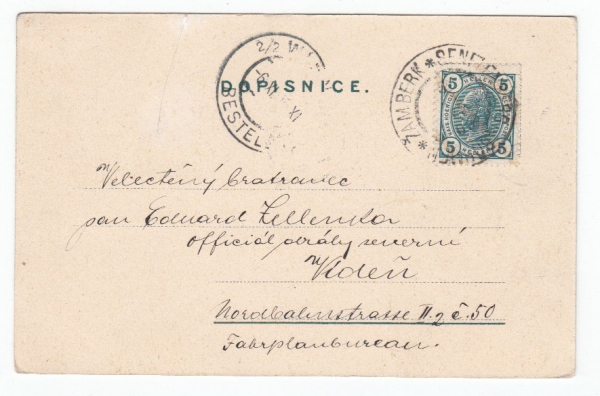 DOPISNICE.
2/2 W
BESTEL
ŽAMBERK * SENF
5 5
5 5
Velectěný bratranec
pan Eduard Zellenka
officiál dráhy severní
Vídeň
Nordbahnstrasse II.2 č. 50
Fahrplanbureau.